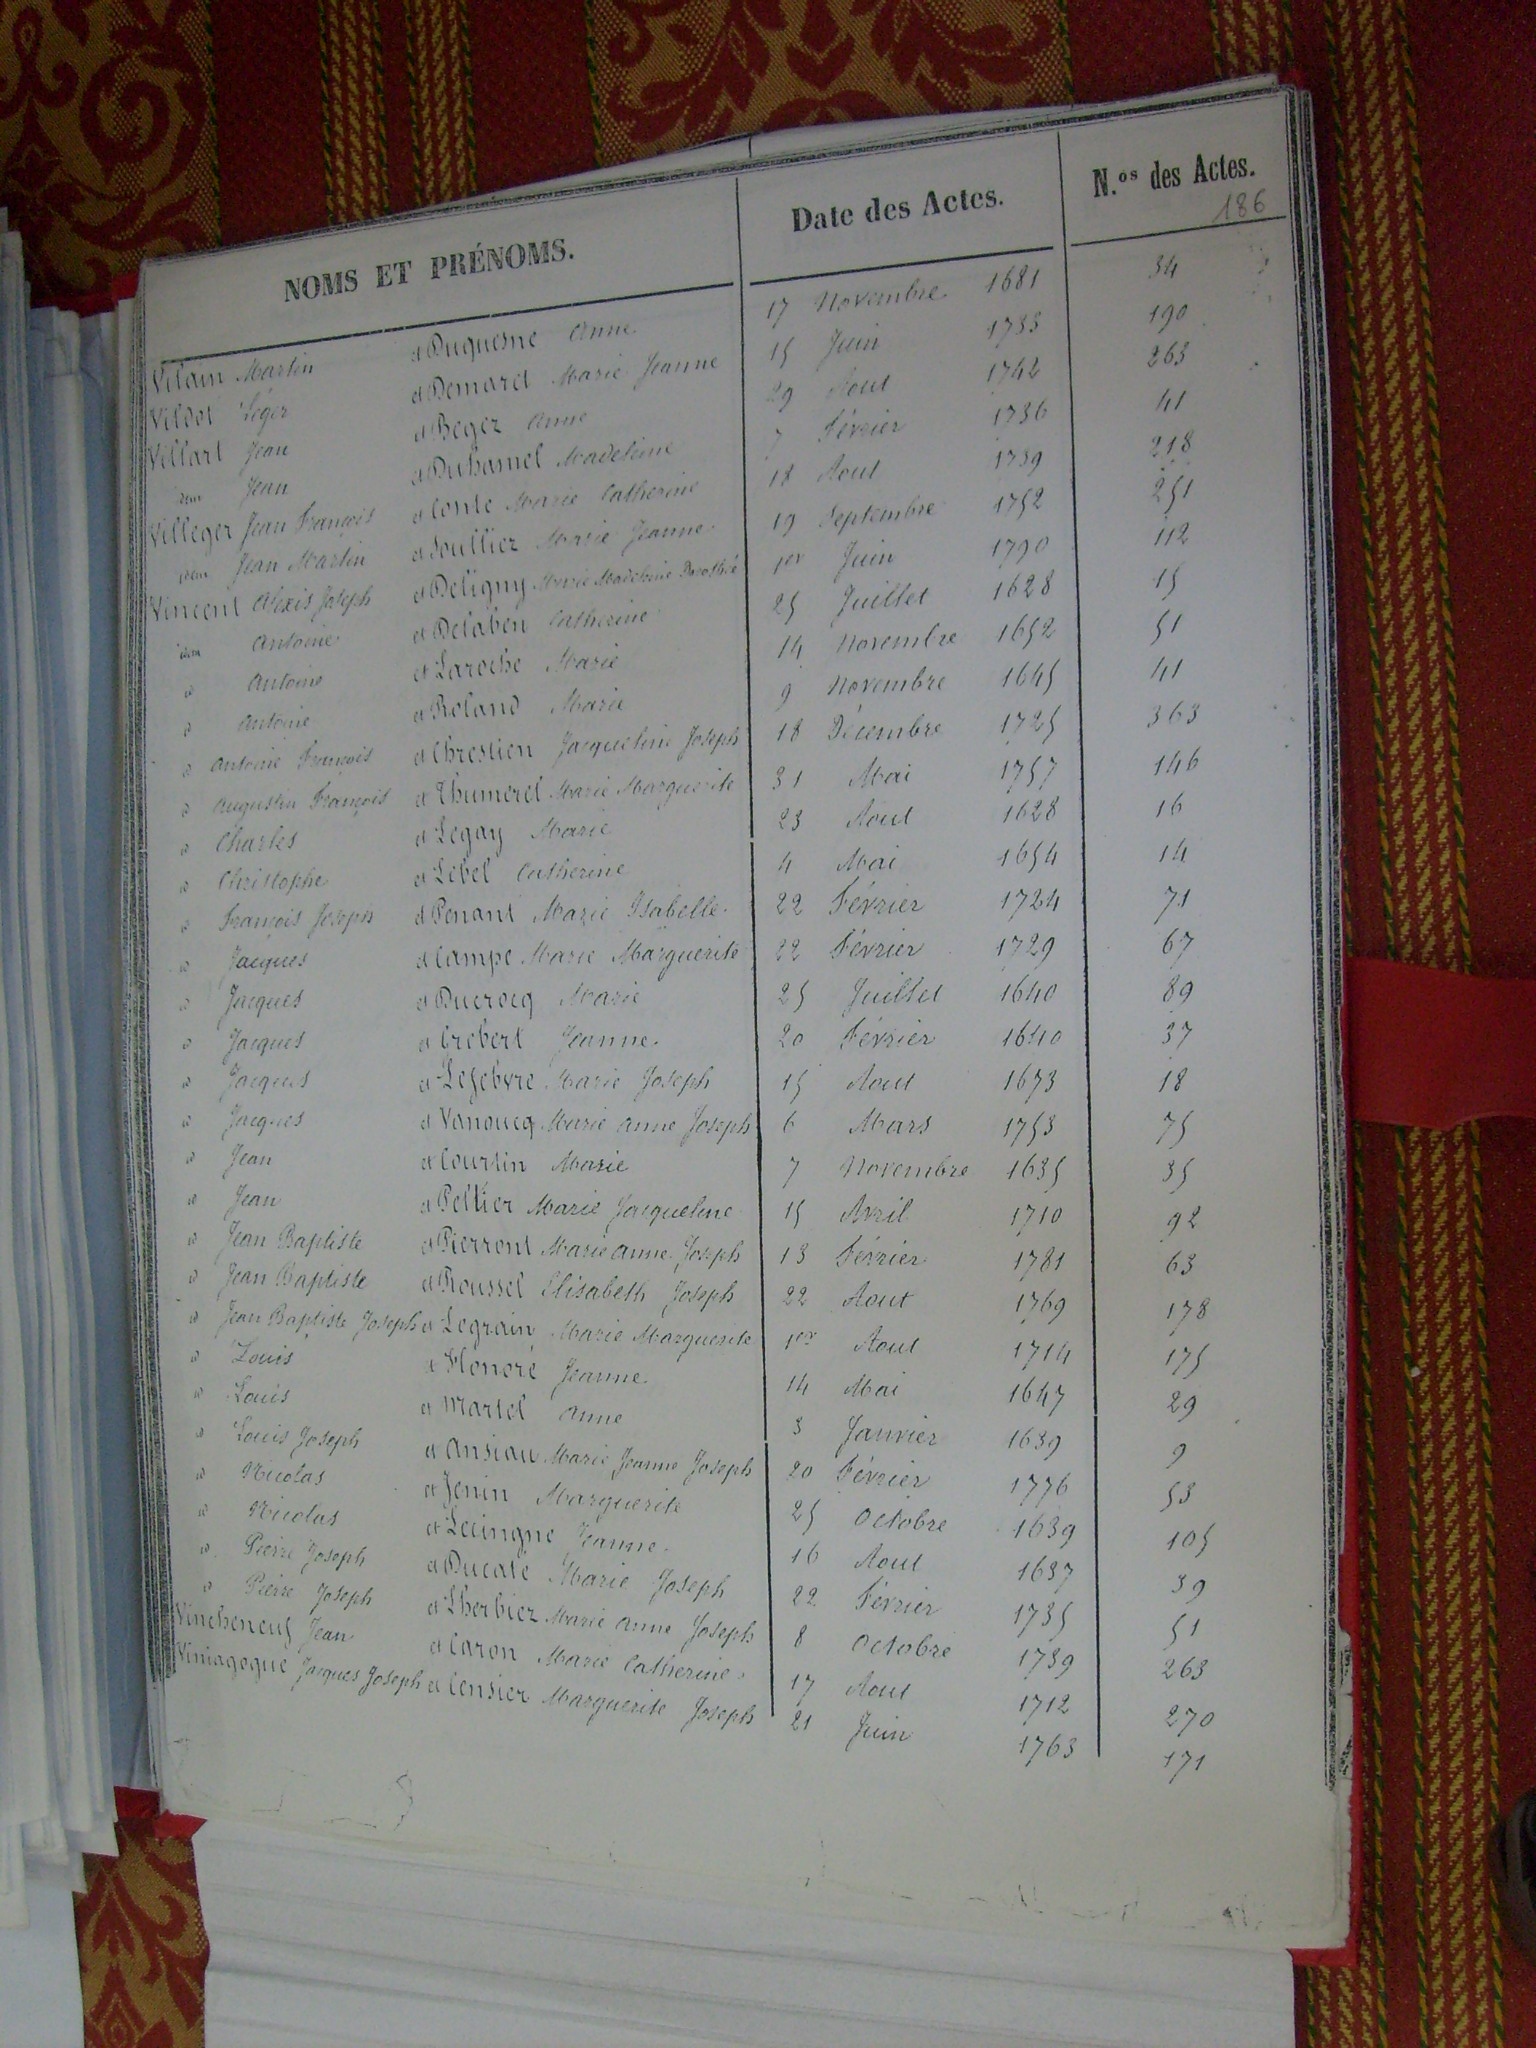 NOMS ET PRÉNOMS. Date des Actes. N.os des Actes.
186
Vilain Martin et Duquesne Anne 17 Novembre 1681 34
Vildot Léger et Demaret Marie Jeanne 15 Juin 1733 190
Villart Jean et Begez Anne 29 Aout 1742 263
idem Jean et Duhamel Madeleine 7 Février 1736 41
Villeger Jean François et Conte Marie Catherine 18 Aout 1739 218
idem Jean Martin et Soulliez Marie Jeanne 19 Septembre 1752 251
Vincent Alexis Joseph et Deligny Marie Madeleine Dorothée 1er Juin 1790 112
idem Antoine et Delaben Catherine 25 Juillet 1628 15
d Antoine et Laroche Marie 14 Novembre 1652 51
d Antoine et Roland Marie 9 Novembre 1645 41
d Antoine François et Chrestien Jacqueline Joseph 18 Décembre 1725 363
d Augustin François et Thumerel Marie Marguerite 31 Mai 1757 146
d Charles et Legay Marie 23 Aout 1628 16
d Christophe et Lebel Catherine 4 Mai 1654 14
d François Joseph et Penant Marie Isabelle 22 Février 1724 71
d Jacques et Campe Marie Marguerite 22 Février 1729 67
d Jacques et Ducrocq Marie 25 Juillet 1640 89
d Jacques et Crebert Jeanne 20 Février 1640 37
d Jacques et Lefebvre Marie Joseph 15 Aout 1673 18
d Jacques et Vanoucq Marie Anne Joseph 6 Mars 1753 75
d Jean et Courtin Marie 7 Novembre 1635 35
d Jean et Peltier Marie Jacqueline 15 Avril 1710 92
d Jean Baptiste et Pierront Marie Anne Joseph 13 Février 1781 63
d Jean Baptiste et Roussel Elisabeth Joseph 22 Aout 1769 178
d Jean Baptiste Joseph et Legrain Marie Marguerite 1er Aout 1714 175
d Louis et Honoré Jeanne 14 Mai 1647 29
d Louis et Martel Anne 3 Janvier 1639 9
d Louis Joseph et Ansiau Marie Jeanne Joseph 20 Février 1776 53
d Nicolas et Jenin Marguerite 25 Octobre 1639 105
d Nicolas et Lecingne Jeanne 16 Aout 1637 39
d Pierre Joseph et Ducaté Marie Joseph 22 Février 1735 51
d Pierre Joseph et Lherbiez Marie Anne Joseph 8 Octobre 1739 263
Vincheneuf Jean et Caron Marie Catherine 17 Aout 1712 270
Viniagogue Jacques Joseph et Censier Marguerite Joseph 21 Juin 1763 171